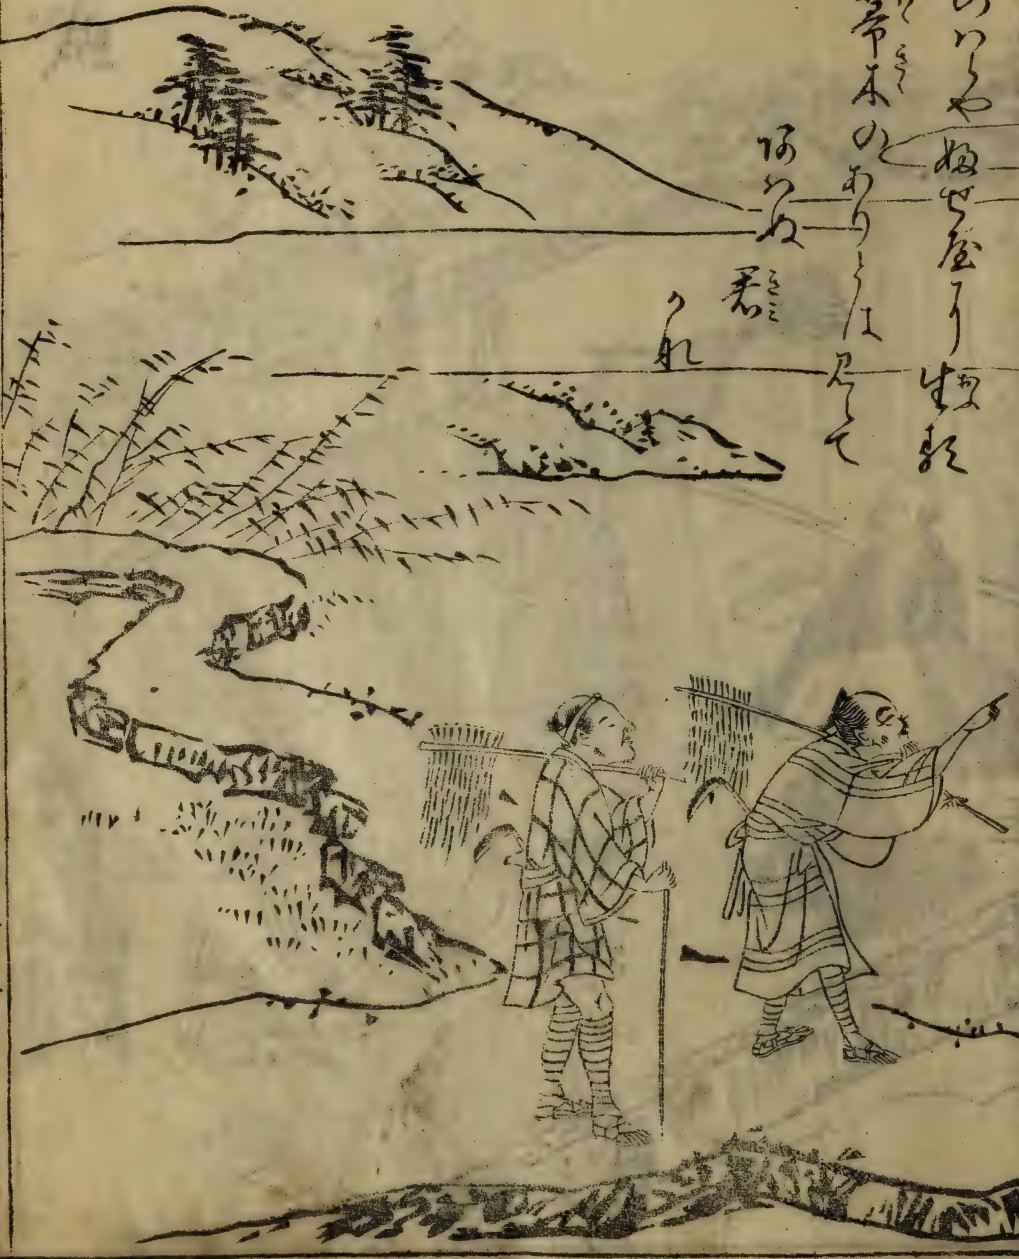 のはらやふせ屋に生る
帚木のありとは見えて
あはぬ
君
きみ
かな